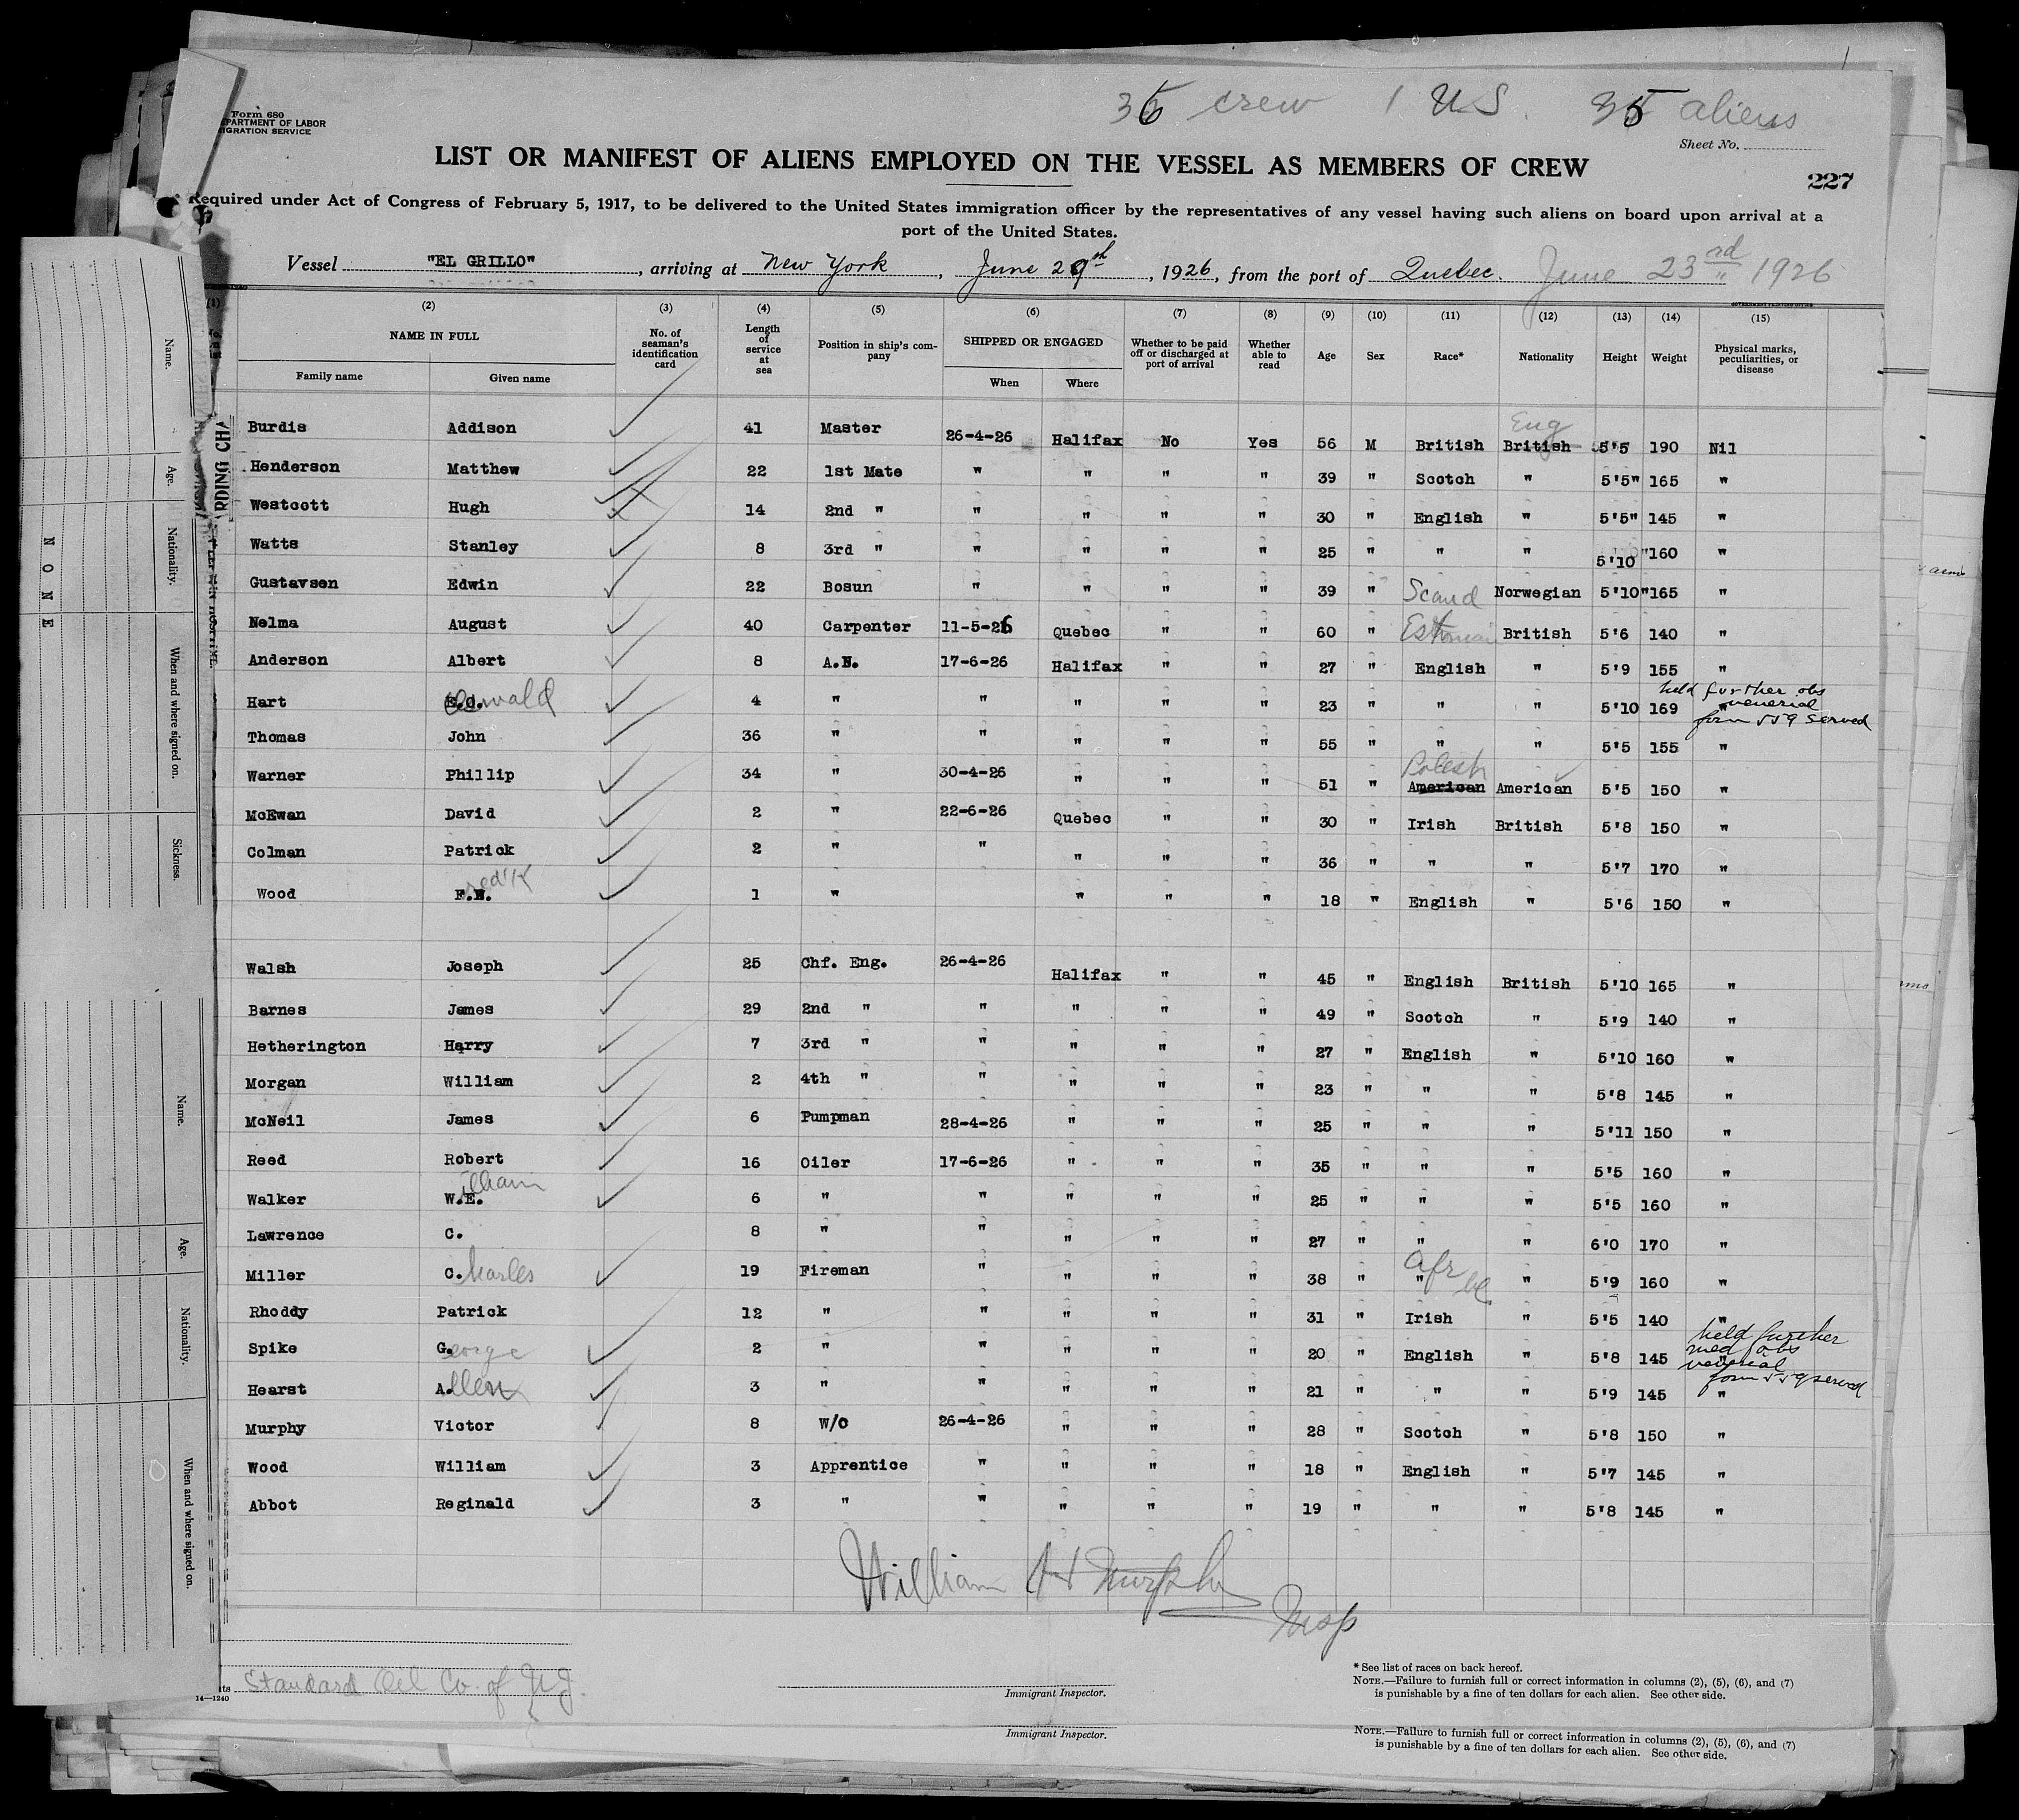 36 crew 1 US. 35 aliens
Form 680
DEPARTMENT OF LABOR
IMMIGRATION SERVICE
Sheet No.
LIST OR MANIFEST OF ALIENS EMPLOYED ON THE VESSEL AS MEMBERS OF CREW
227
Required under Act of Congress of February 5, 1917, to be delivered to the United States immigration officer by the representatives of any vessel having such aliens on board upon arrival at a
port of the United States.
Vessel "EL GRILLO", arriving at New York, June 29th, 1926, from the port of Quebec. June 23rd 1926
(1) (2) (3) (4) (5) (6) (7) (8) (9) (10) (11) (12) (13) (14) (15)
NAME IN FULL No. of seaman's identification card Length of service at sea Position in ship's company SHIPPED OR ENGAGED Whether to be paid off or discharged at port of arrival Whether able to read Age Sex Race* Nationality Height Weight Physical marks, peculiarities, or disease
Family name Given name When Where
Eng
Burdis Addison 41 Master 26-4-26 Halifax No Yes 56 M British British 5'5 190 Nil
Henderson Matthew 22 1st Mate " " " " 39 " Scotch " 5'5" 165 "
Westcott Hugh 14 2nd " " " " " 30 " English " 5'5" 145 "
Watts Stanley 8 3rd " " " " " 25 " " " 5'10" 160 "
Gustavsen Edwin 22 Bosun " " " " 39 " Scand Norwegian 5'10" 165 "
Nelma August 40 Carpenter 11-5-26 Quebec " " 60 " Esthonian British 5'6 140 "
Anderson Albert 8 A.B. 17-6-26 Halifax " " 27 " English " 5'9 155 "
held further obs
venerial
form 559 served
Hart Oswald 4 " " " " " 23 " " " 5'10 169 "
Thomas John 36 " " " " " 55 " " " 5'5 155 "
Polish
Warner Phillip 34 " 30-4-26 " " " 51 " American American 5'5 150 "
McEwan David 2 " 22-6-26 Quebec " " 30 " Irish British 5'8 150 "
Colman Patrick 2 " " " " " 36 " " " 5'7 170 "
redk
Wood F. 1 " " " " 18 " English " 5'6 150 "
Walsh Joseph 25 Chf. Eng. 26-4-26 Halifax " " 45 " English British 5'10 165 "
Barnes James 29 2nd " " " " " 49 " Scotch " 5'9 140 "
Hetherington Harry 7 3rd " " " " " 27 " English " 5'10 160 "
Morgan William 2 4th " " " " " 23 " " " 5'8 145 "
McNeil James 6 Pumpman 28-4-26 " " " 25 " " " 5'11 150 "
Reed Robert 16 Oiler 17-6-26 " " " 35 " " " 5'5 160 "
illiam
Walker W.E. 6 " " " " " 25 " " " 5'5 160 "
Lawrence C. 8 " " " " " 27 " " " 6'0 170 "
Afr bl
Miller C.harles 19 Fireman " " " " 38 " " " 5'9 160 "
Rhoddy Patrick 12 " " " " " 31 " Irish " 5'5 140 "
held further
med obs
venerial
form 559 served
Spike G.eorge 2 " " " " " 20 " English " 5'8 145 "
Hearst A.llen 3 " " " " " 21 " " " 5'9 145 "
Murphy Victor 8 W/O 26-4-26 " " " 28 " Scotch " 5'8 150 "
Wood William 3 Apprentice " " " " 18 " English " 5'7 145 "
Abbot Reginald 3 " " " " " 19 " " " 5'8 145 "
William H Murphy
Insp
Standard Oil Co. of N.J.
14—1240
Immigrant Inspector.
* See list of races on back hereof.
NOTE.—Failure to furnish full or correct information in columns (2), (5), (6), and (7)
is punishable by a fine of ten dollars for each alien. See other side.
Immigrant Inspector.
NOTE.—Failure to furnish full or correct information in columns (2), (5), (6), and (7)
is punishable by a fine of ten dollars for each alien. See other side.
Name.
Age.
Nationality.
When and where signed on.
Sickness.
NONE
Name.
Age.
Nationality.
When and where signed on.